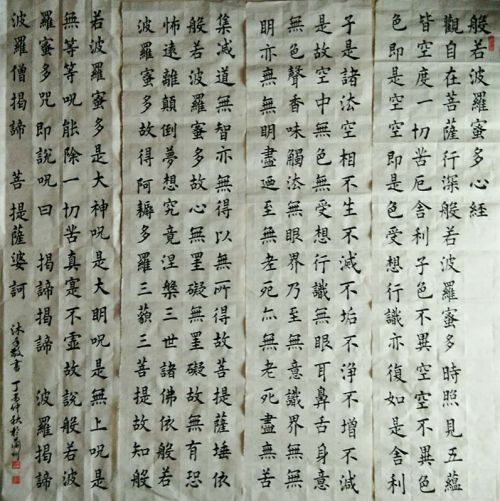 般若波羅蜜多心經
觀自在菩薩行深般若波羅蜜多時照見五蘊
皆空度一切苦厄舍利子色不異空空不異色
色即是空空即是色受想行識亦復如是舍利
子是諸法空相不生不滅不垢不淨不增不減
是故空中無色無受想行識無眼耳鼻舌身意
無色聲香味觸法無眼界乃至無意識界無無
明亦無無明盡迺至無老死亦無老死盡無苦
集滅道無智亦無得以無所得故菩提薩埵依
般若波羅蜜多故心無罣礙無罣礙故無有恐
怖遠離顛倒夢想究竟涅槃三世諸佛依般若
波羅蜜多故得阿耨多羅三藐三菩提故知般
若波羅蜜多是大神呪是大明呪是無上呪是
無等等呪能除一切苦真實不虛故說般若波
羅蜜多咒即說呪曰 揭諦揭諦 波羅揭諦
波羅僧揭諦 菩提薩婆訶
沐手敬書 丁酉仲秋於